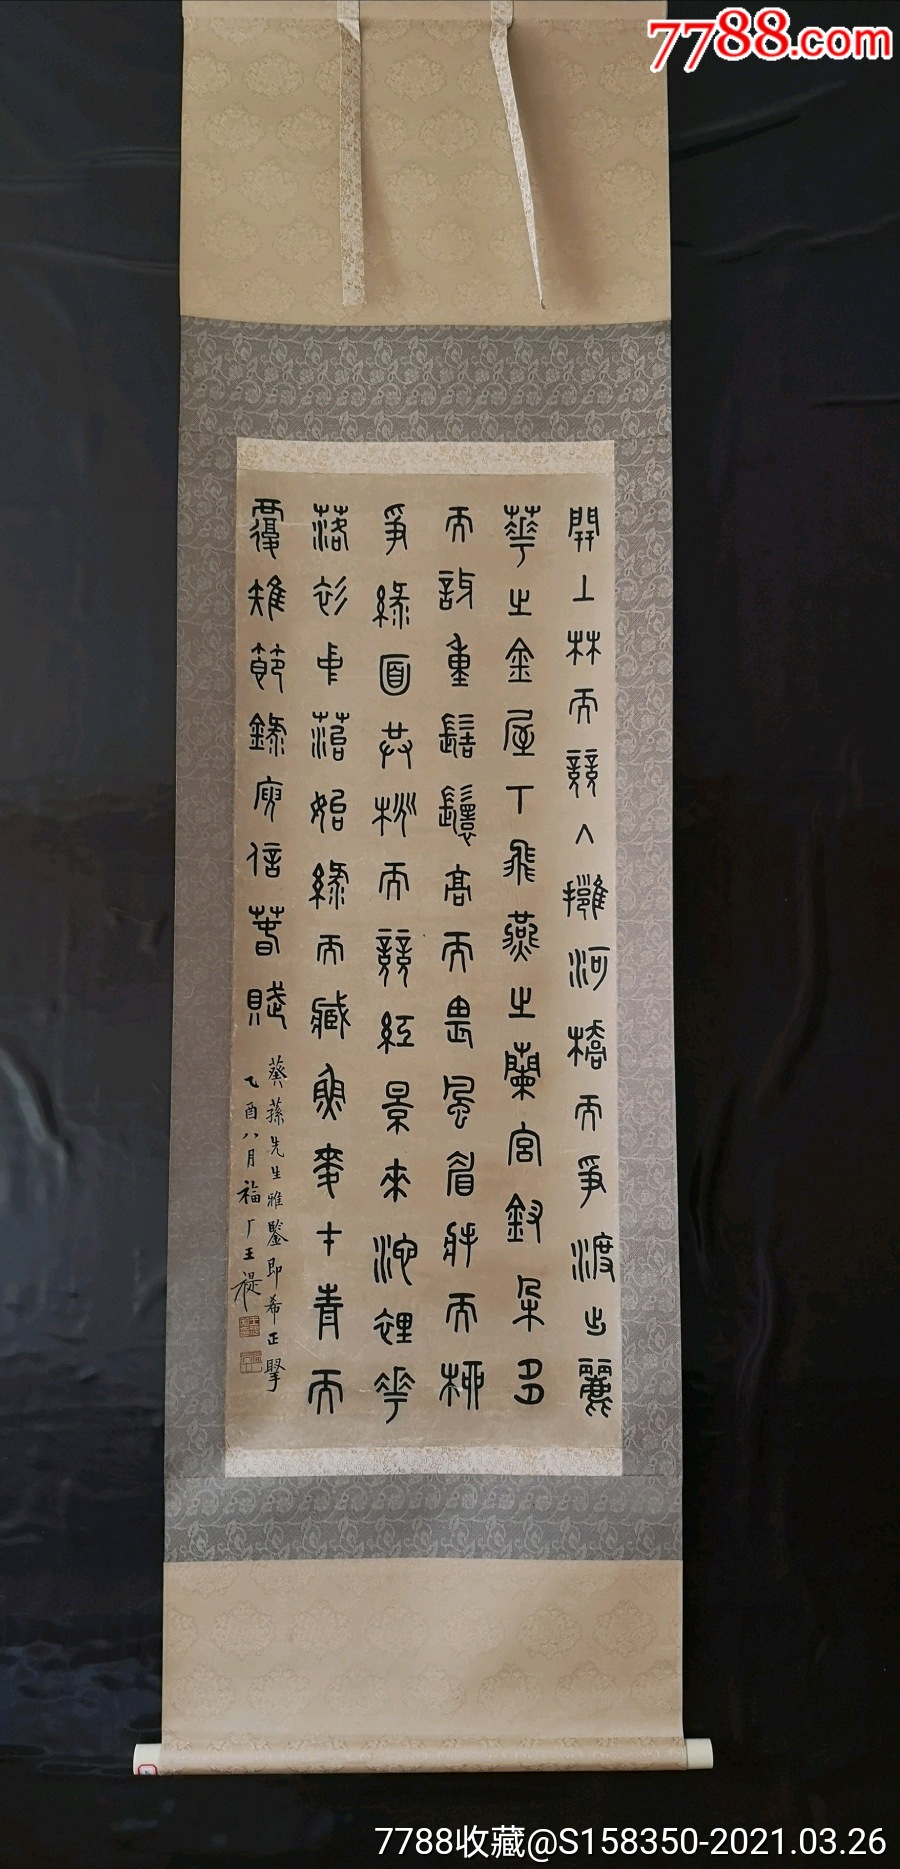 7788.com
開上林而競入擁河橋而爭渡出麗
華之金屋下飛燕之蘭宮釵朵多
而訝重髻鬟高而畏風眉將而柳
爭綠面共桃而競紅景來池裡花
落衫中苔始綠而藏魚麥才青而
覆雉節錄庾信春賦
葵蓀先生雅鑒即希正擘
乙酉八月福厂王禔
7788收藏@S158350-2021.03.26